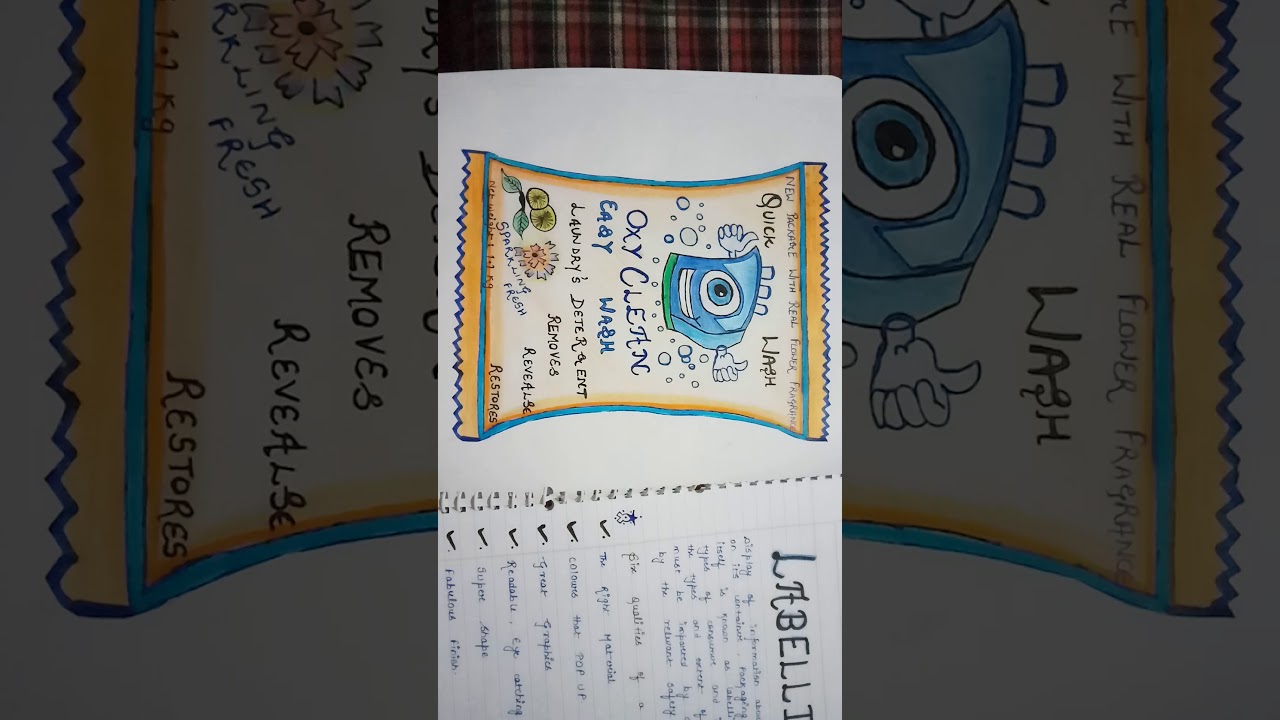 NEW PACKAGE WITH REAL FLOWER FRAGRANCE
QUICK WASH
OXY CLEAN
EASY WASH
LAUNDRY'S DETERGENT
REMOVES
SPARKLING
FRESH
REVEALSE
RESTORES
Net weight 1.1 kg
LABELLI
Display of information abou
on its container, packaging
itself is known as labelli
types of consume and
the types and extent of
must be impared by
by the relevant safety
Six Qualities of a
✓ The Right Material
✓ Colours that POP UP
✓ Great Graphics
✓ Readable, Eye catching
✓ Supere shape
✓ Fabulous Finish.
1.1 kg
RKLING
FRESH
REMOVES
REVEALSE
RESTORES
WITH REAL FLOWER FRAGRANCE
WASH